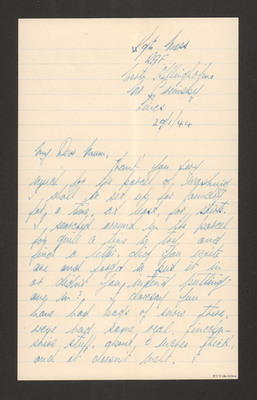 Sgts Mess
RAF
North Killingholme
Nr Grimsby
Lincs
29/1/44
My Dear Mum,
Thank you very
much for the parcel of
I shall be set up for
for a time, at least, for
I searched around in the parcel
for quite a time to try and
find a letter. Did you write
one and forget to put it in
or didn't you intend putting
any in? I daresay you
have had bags of snow there.
weve had some, real,
stuff, about, 2 inches thick,
and it doesn't melt. I